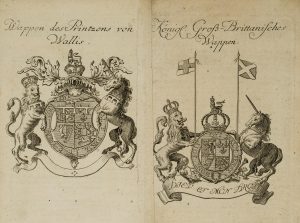 Wappen des Printzens von
Wallis.
Königl. Groß-Brittanisches
Wappen
DIEU ET MON DROIT